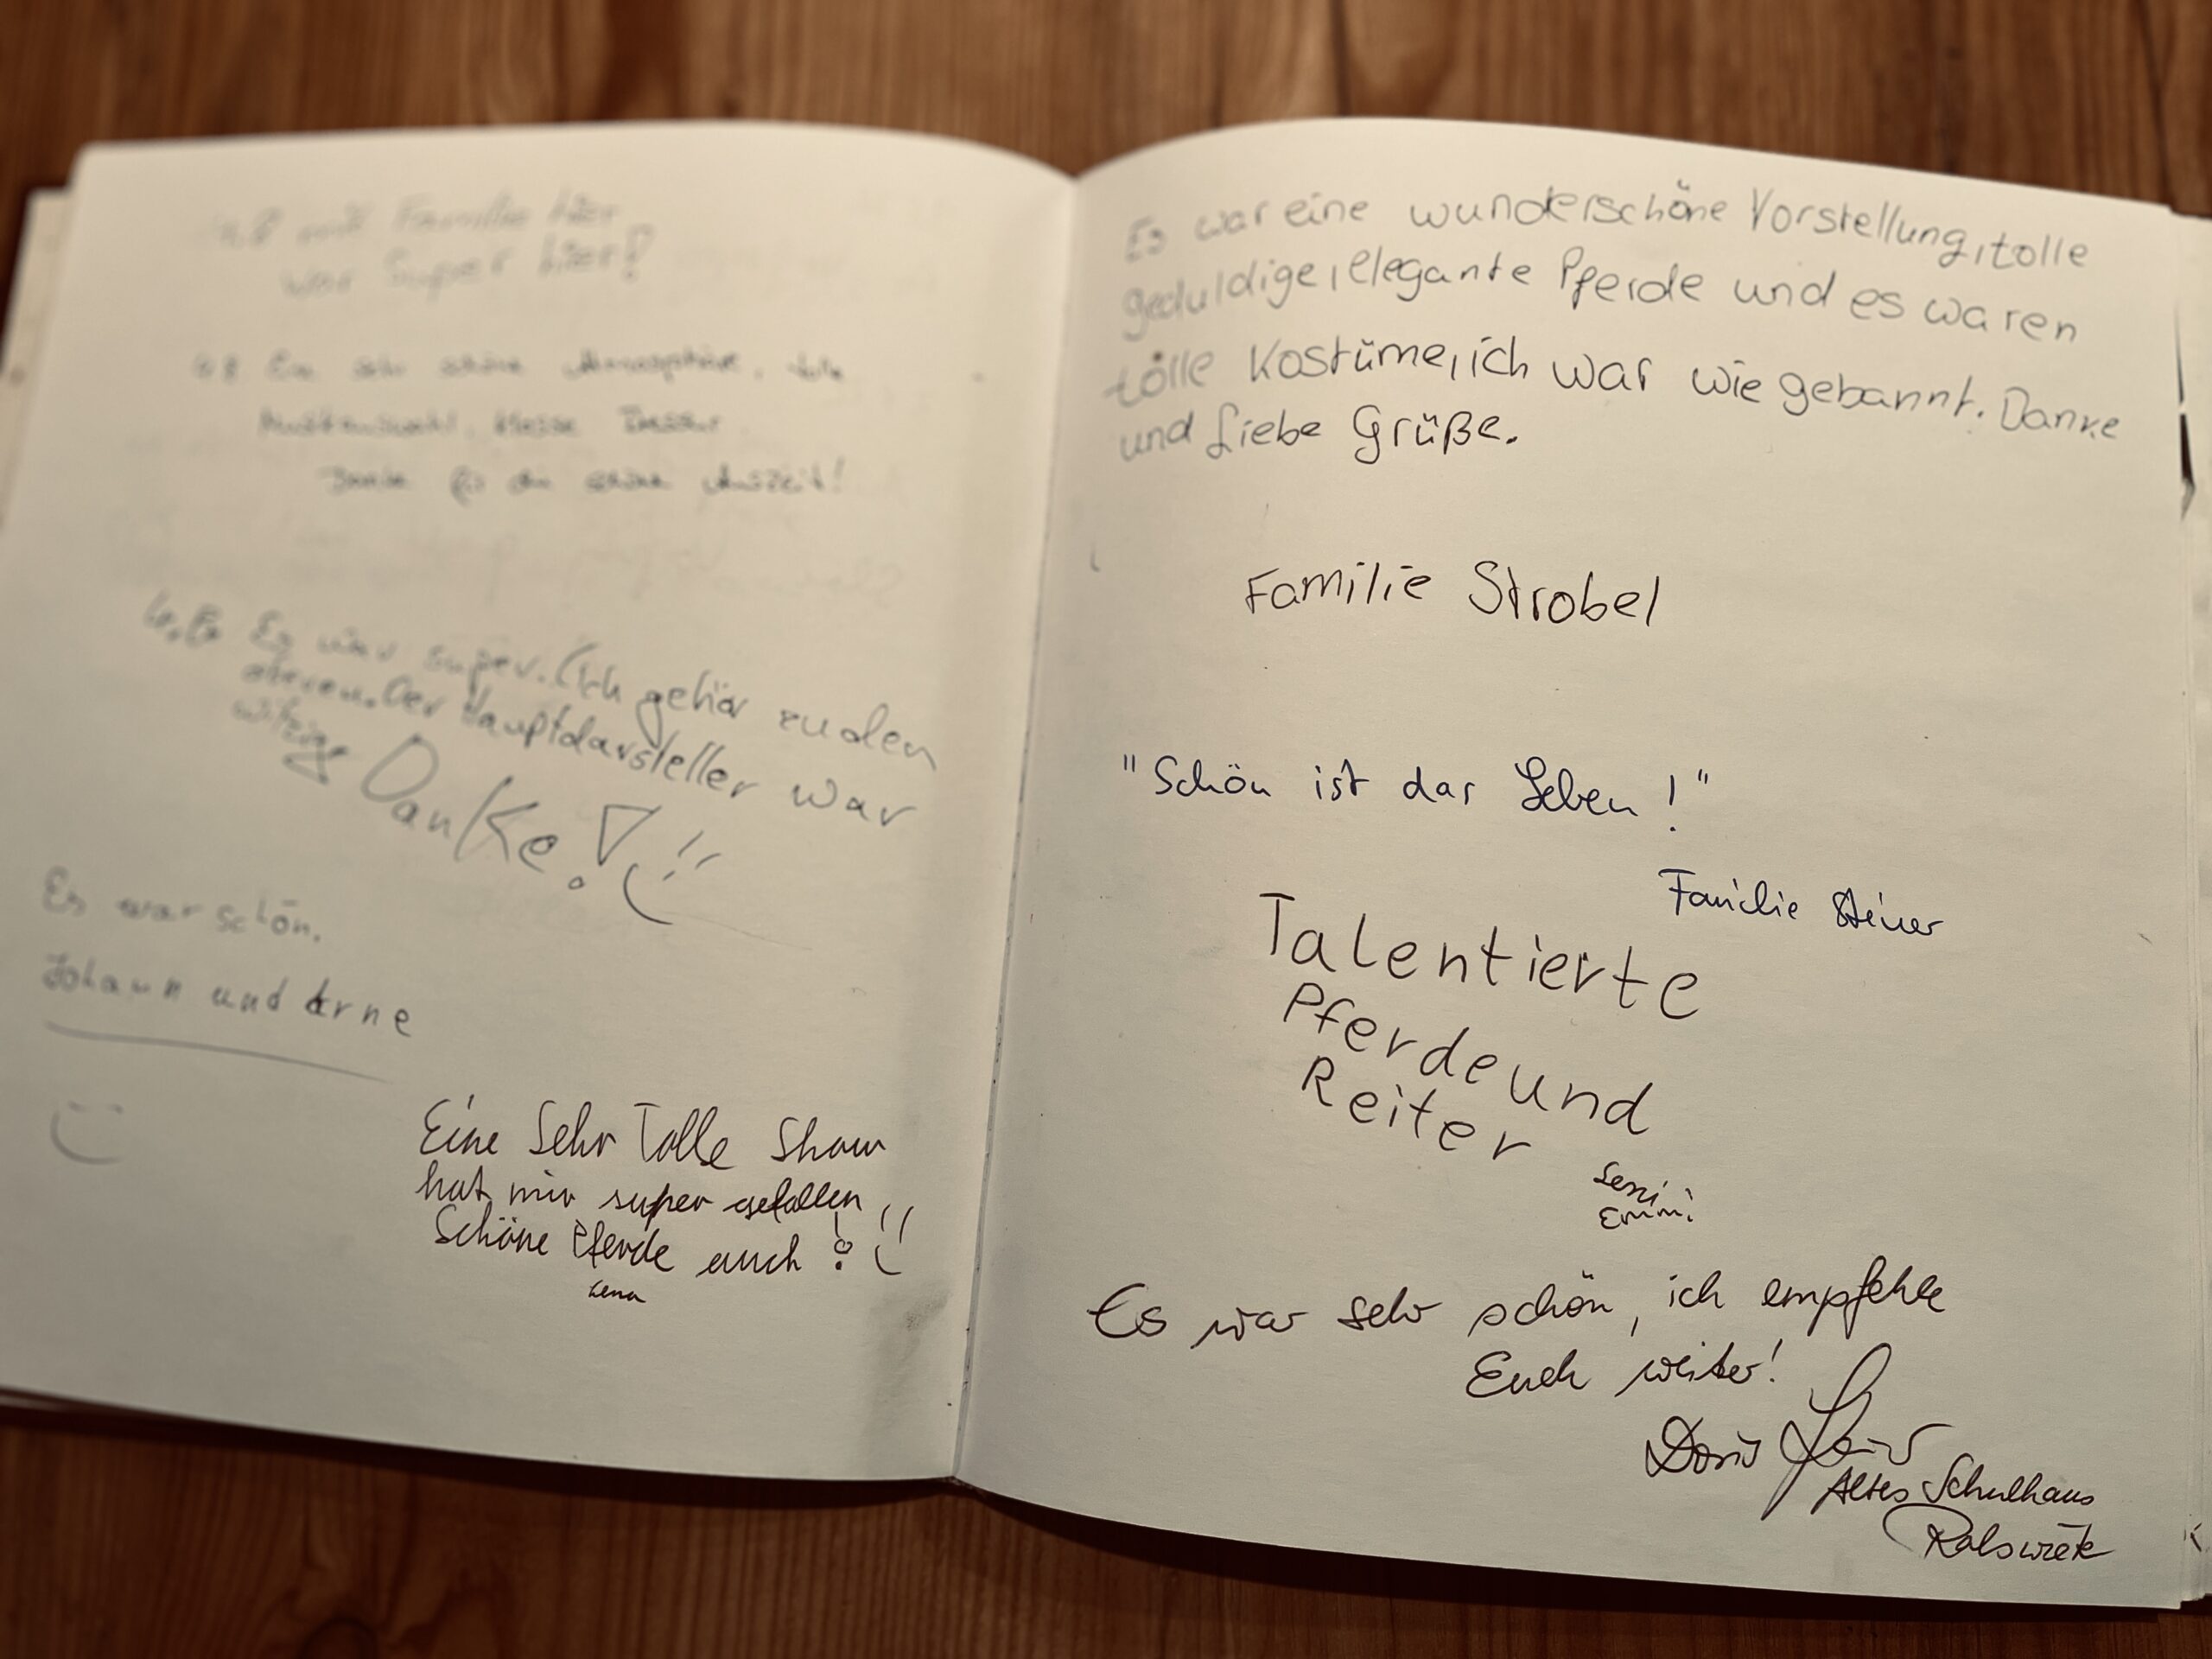 mit Familie hier
war Super hier!
Ein sehr schöne Atmosphäre, tolle
Musikauswahl, klasse
Danke für die schöne Auszeit!
Es war super. (Ich gehör zu den
älteren. Der Hauptdarsteller war
witzig
Danke!
Es war schön.
Johann und Arne
Eine Sehr Tolle Show
hat mir super gefallen
Schöne Pferde auch!
Lena
Es war eine wunderschöne Vorstellung, tolle
geduldige, elegante Pferde und es waren
tolle Kostüme, ich war wie gebannt. Danke
und Liebe Grüße.
Familie Strobel
"Schön ist das Leben!"
Familie Steiner
Talentierte
Pferde und
Reiter
Emmi
Es war sehr schön, ich empfehle
Euch weiter!
Doris
Altes Schulhaus
Ralswiek